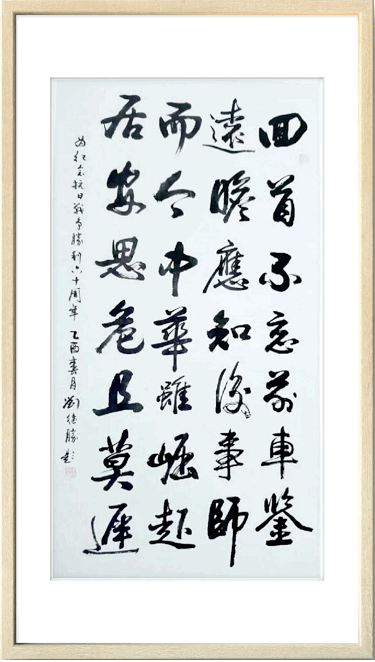 回首不忘前車鑒
遠瞻應知後事師
而今中華雖崛起
居安思危且莫遲
為紀念抗日戰爭勝利六十周年 乙酉 月 劉德勝